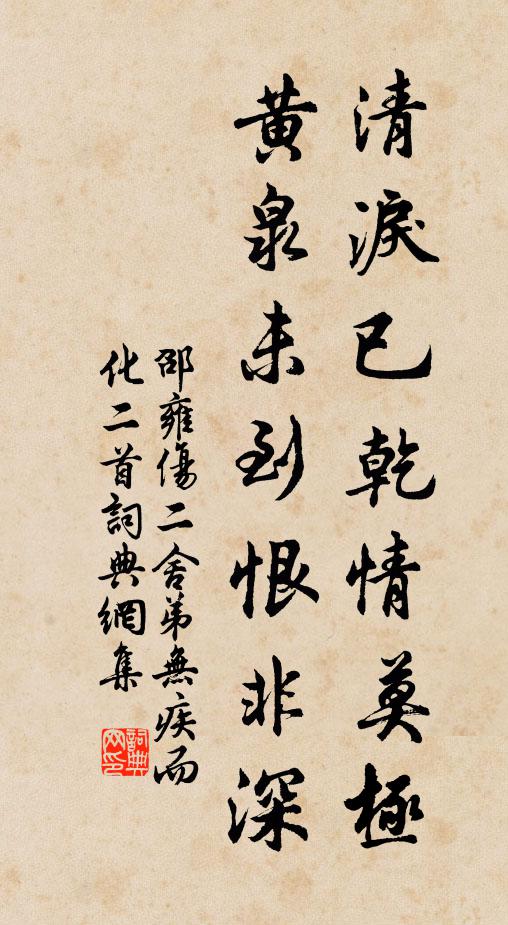 清淚已乾情莫極
黃泉未到恨非深
邵雍傷二舍弟無疾而
化二首詞典網集
詞典網印